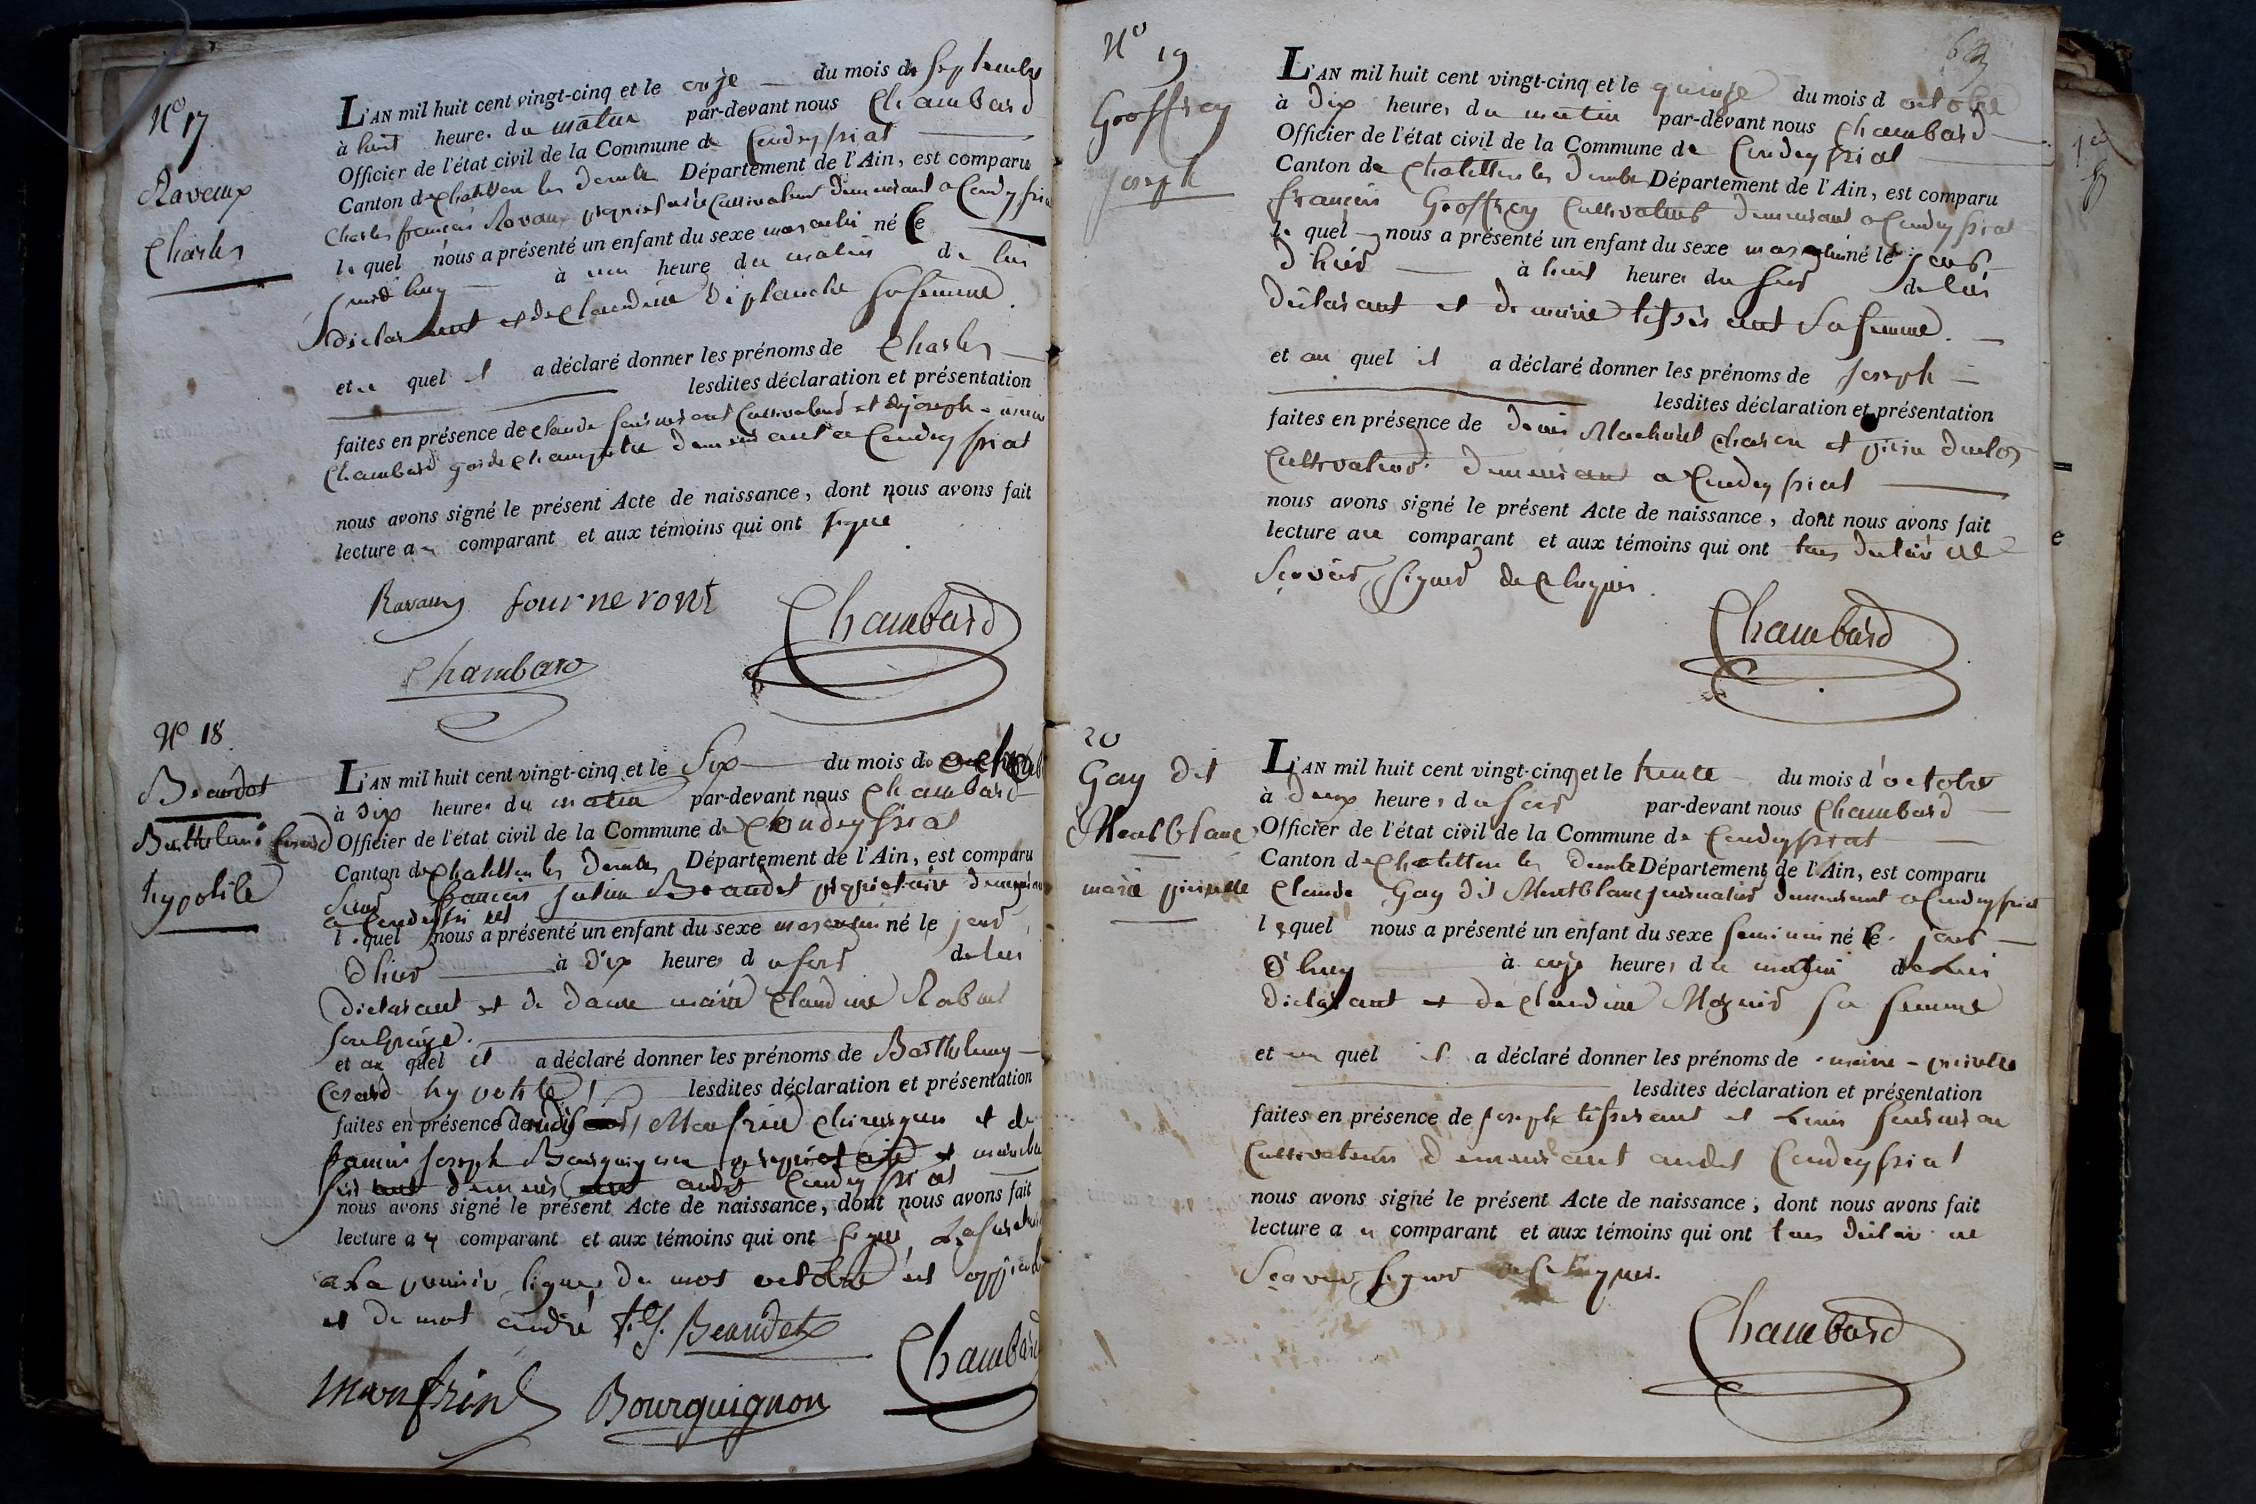 Nº 17
Raveaux
Charles
L'AN mil huit cent vingt-cinq et le onze du mois de Septembre
à huit heures du matin par-devant nous Chambard
Officier de l'état civil de la Commune de Condeyssiat
Canton de Chatillon les Dombe Département de l'Ain, est comparu
Charles françois Ravaux propriétaire Cultivateur demeurant a Condeyssiat
lequel nous a présenté un enfant du sexe masculin né le
à une heure du matin de lui
déclarant et de Claudine Deplanche sa femme
et au quel il a déclaré donner les prénoms de Charles
lesdites déclaration et présentation
faites en présence de Claude Cultivateur et de joseph marie
Chambard garde Champetre demeurant a Condeyssiat
nous avons signé le présent Acte de naissance, dont nous avons fait
lecture au comparant et aux témoins qui ont signé
Ravaux fourneront Chambard
Chambard
Nº 18
Beaudet
Barthelemi Cesard
hypolite
L'AN mil huit cent vingt-cinq et le Six du mois de octobre
à Dix heures du matin par-devant nous Chambard
Officier de l'état civil de la Commune de Condeyssiat
Canton de Chatillon les Dombes Département de l'Ain, est comparu
Sieur françois Beaudet propriétaire demeurant
a Condeyssiat
lequel nous a présenté un enfant du sexe masculin né le jour
d'hier à Dix heures du soir de lui
déclarant et de dame marie Claudine Rabuel
et au quel il a déclaré donner les prénoms de Barthelemy
Cesard hypolite lesdites déclaration et présentation
faites en présence de Manfrind Chirurgien et de
françois Joseph Bourguignon propriétaire et
demeurant audit Condeyssiat
nous avons signé le présent Acte de naissance, dont nous avons fait
lecture au comparant et aux témoins qui ont signé, La surcharge
a La premier ligne, du mot octobre est approuvé
et du mot andré f. J. Beaudet
Chambard
manfrind Bourguignon
Nº 19
Geoffrey
joseph
L'AN mil huit cent vingt-cinq et le quinze du mois d octobre
à Dix heures du matin par-devant nous Chambard
Officier de l'état civil de la Commune de Condeyssiat
Canton de Chatillon les Dombe Département de l'Ain, est comparu
françois Geoffrey Cultivateur demeurant a Condeyssiat
le quel nous a présenté un enfant du sexe masculin né le jour
d'hier à huit heures du soir de lui
déclarant et de marie tisserant sa femme
et au quel il a déclaré donner les prénoms de joseph
lesdites déclaration et présentation
faites en présence de denis charon et
Cultivateur demeurant a Condeyssiat
nous avons signé le présent Acte de naissance, dont nous avons fait
lecture au comparant et aux témoins qui ont tous déclaré ne
Sçavoir signer de ce requis.
Chambard
20
Gay dit
Montblanc
marie pierrette
L'AN mil huit cent vingt-cinq et le trente du mois d'octobre
à Deux heures du soir par-devant nous Chambard
Officier de l'état civil de la Commune de Condeyssiat
Canton de Chatillon les Dombe Département de l'Ain, est comparu
Claude Gay dit Montblanc journalier demeurant a Condeyssiat
lequel nous a présenté un enfant du sexe feminin né le jour
d'huy à onze heures du matin de Lui
déclarant et de Claudine sa femme
et au quel il a déclaré donner les prénoms de marie pierrette
lesdites déclaration et présentation
faites en présence de joseph tisserant et
Cultivateurs demeurant audit Condeyssiat
nous avons signé le présent Acte de naissance, dont nous avons fait
lecture au comparant et aux témoins qui ont tous déclaré ne
Sçavoir signer de ce requis.
Chambard